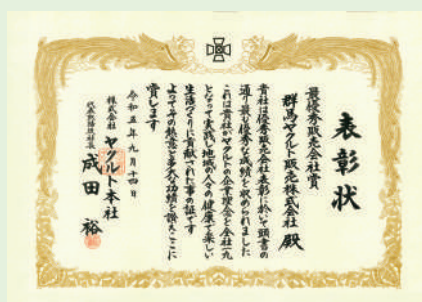 表彰状
最優秀販売会社賞
群馬ヤクルト販売株式会社 殿
貴社は優秀販売会社表彰に於て頭書の
通り最も優秀な成績を収められました
これは貴社がヤクルトの企業理念を全社一丸
となって実践し地域の人々の健康で楽しい
生活づくりに貢献された事の証です
よってその熱意と多大な功績を讃えここに
賞します
令和五年九月十四日
株式会社 ヤクルト本社
代表取締役社長 成田 裕